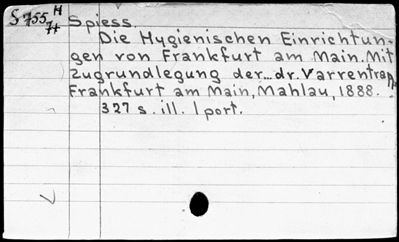 S755 H
7+ Spiess.
Die Hygienischen Einrichtun-
gen von Frankfurt am Main. Mit
Zugrundlegung der... dr. Varrentrapp
Frankfurt am Main, Mahlau, 1888.
327 s. ill. 1 port.